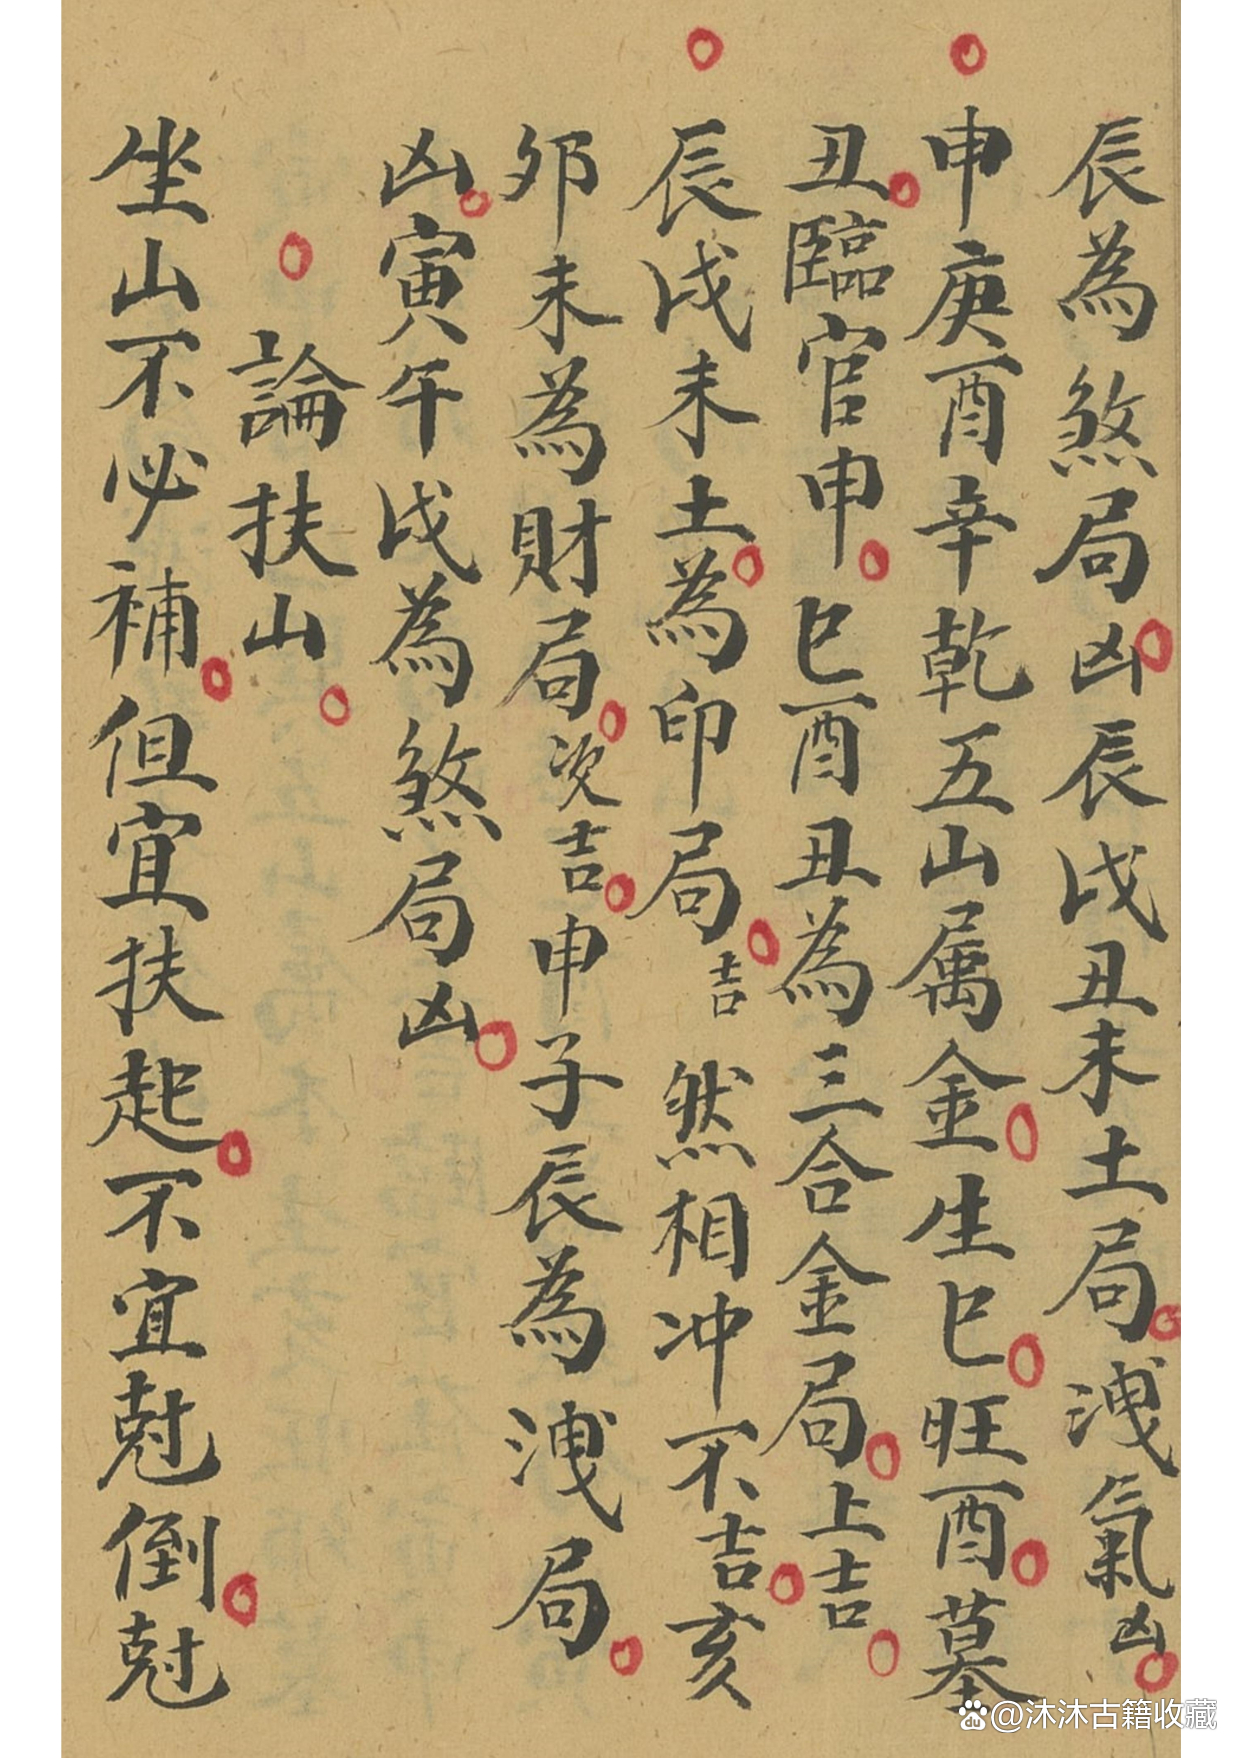 辰為煞局凶辰戌丑未土局洩氣凶
申庚酉辛乾五山属金生巳旺酉墓
丑臨官申巳酉丑為三合金局上吉
辰戌未土為印局吉然相冲不吉亥
夘未為財局次吉申子辰為洩局
凶寅午戌為煞局凶
論扶山
坐山不必補但宜扶起不宜尅倒尅
@沐沐古籍收藏